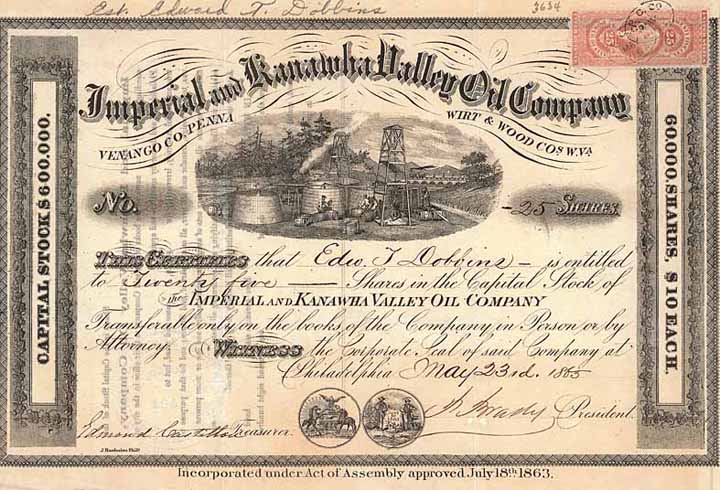 Est. Edward T. Dobbins
3634
25 25
Imperial and Kanawha Valley Oil Company
VENANGO CO. PENNA WIRT & WOOD COS W.VA.
No. -25 SHARES.
CAPITAL STOCK $600,000.
60,000, SHARES $10 EACH.
THIS CERTIFIES that Edw. T Dobbins – is entitled
to Twenty five — Shares in the Capital Stock of
the IMPERIAL AND KANAWHA VALLEY OIL COMPANY
Transferable only on the books of the Company in Person or by
Attorney. WITNESS the Corporate Seal of said Company at
Philadelphia May 23rd. 1865
Edmond Treasurer. President.
Incorporated under Act of Assembly approved July 18th. 1863.